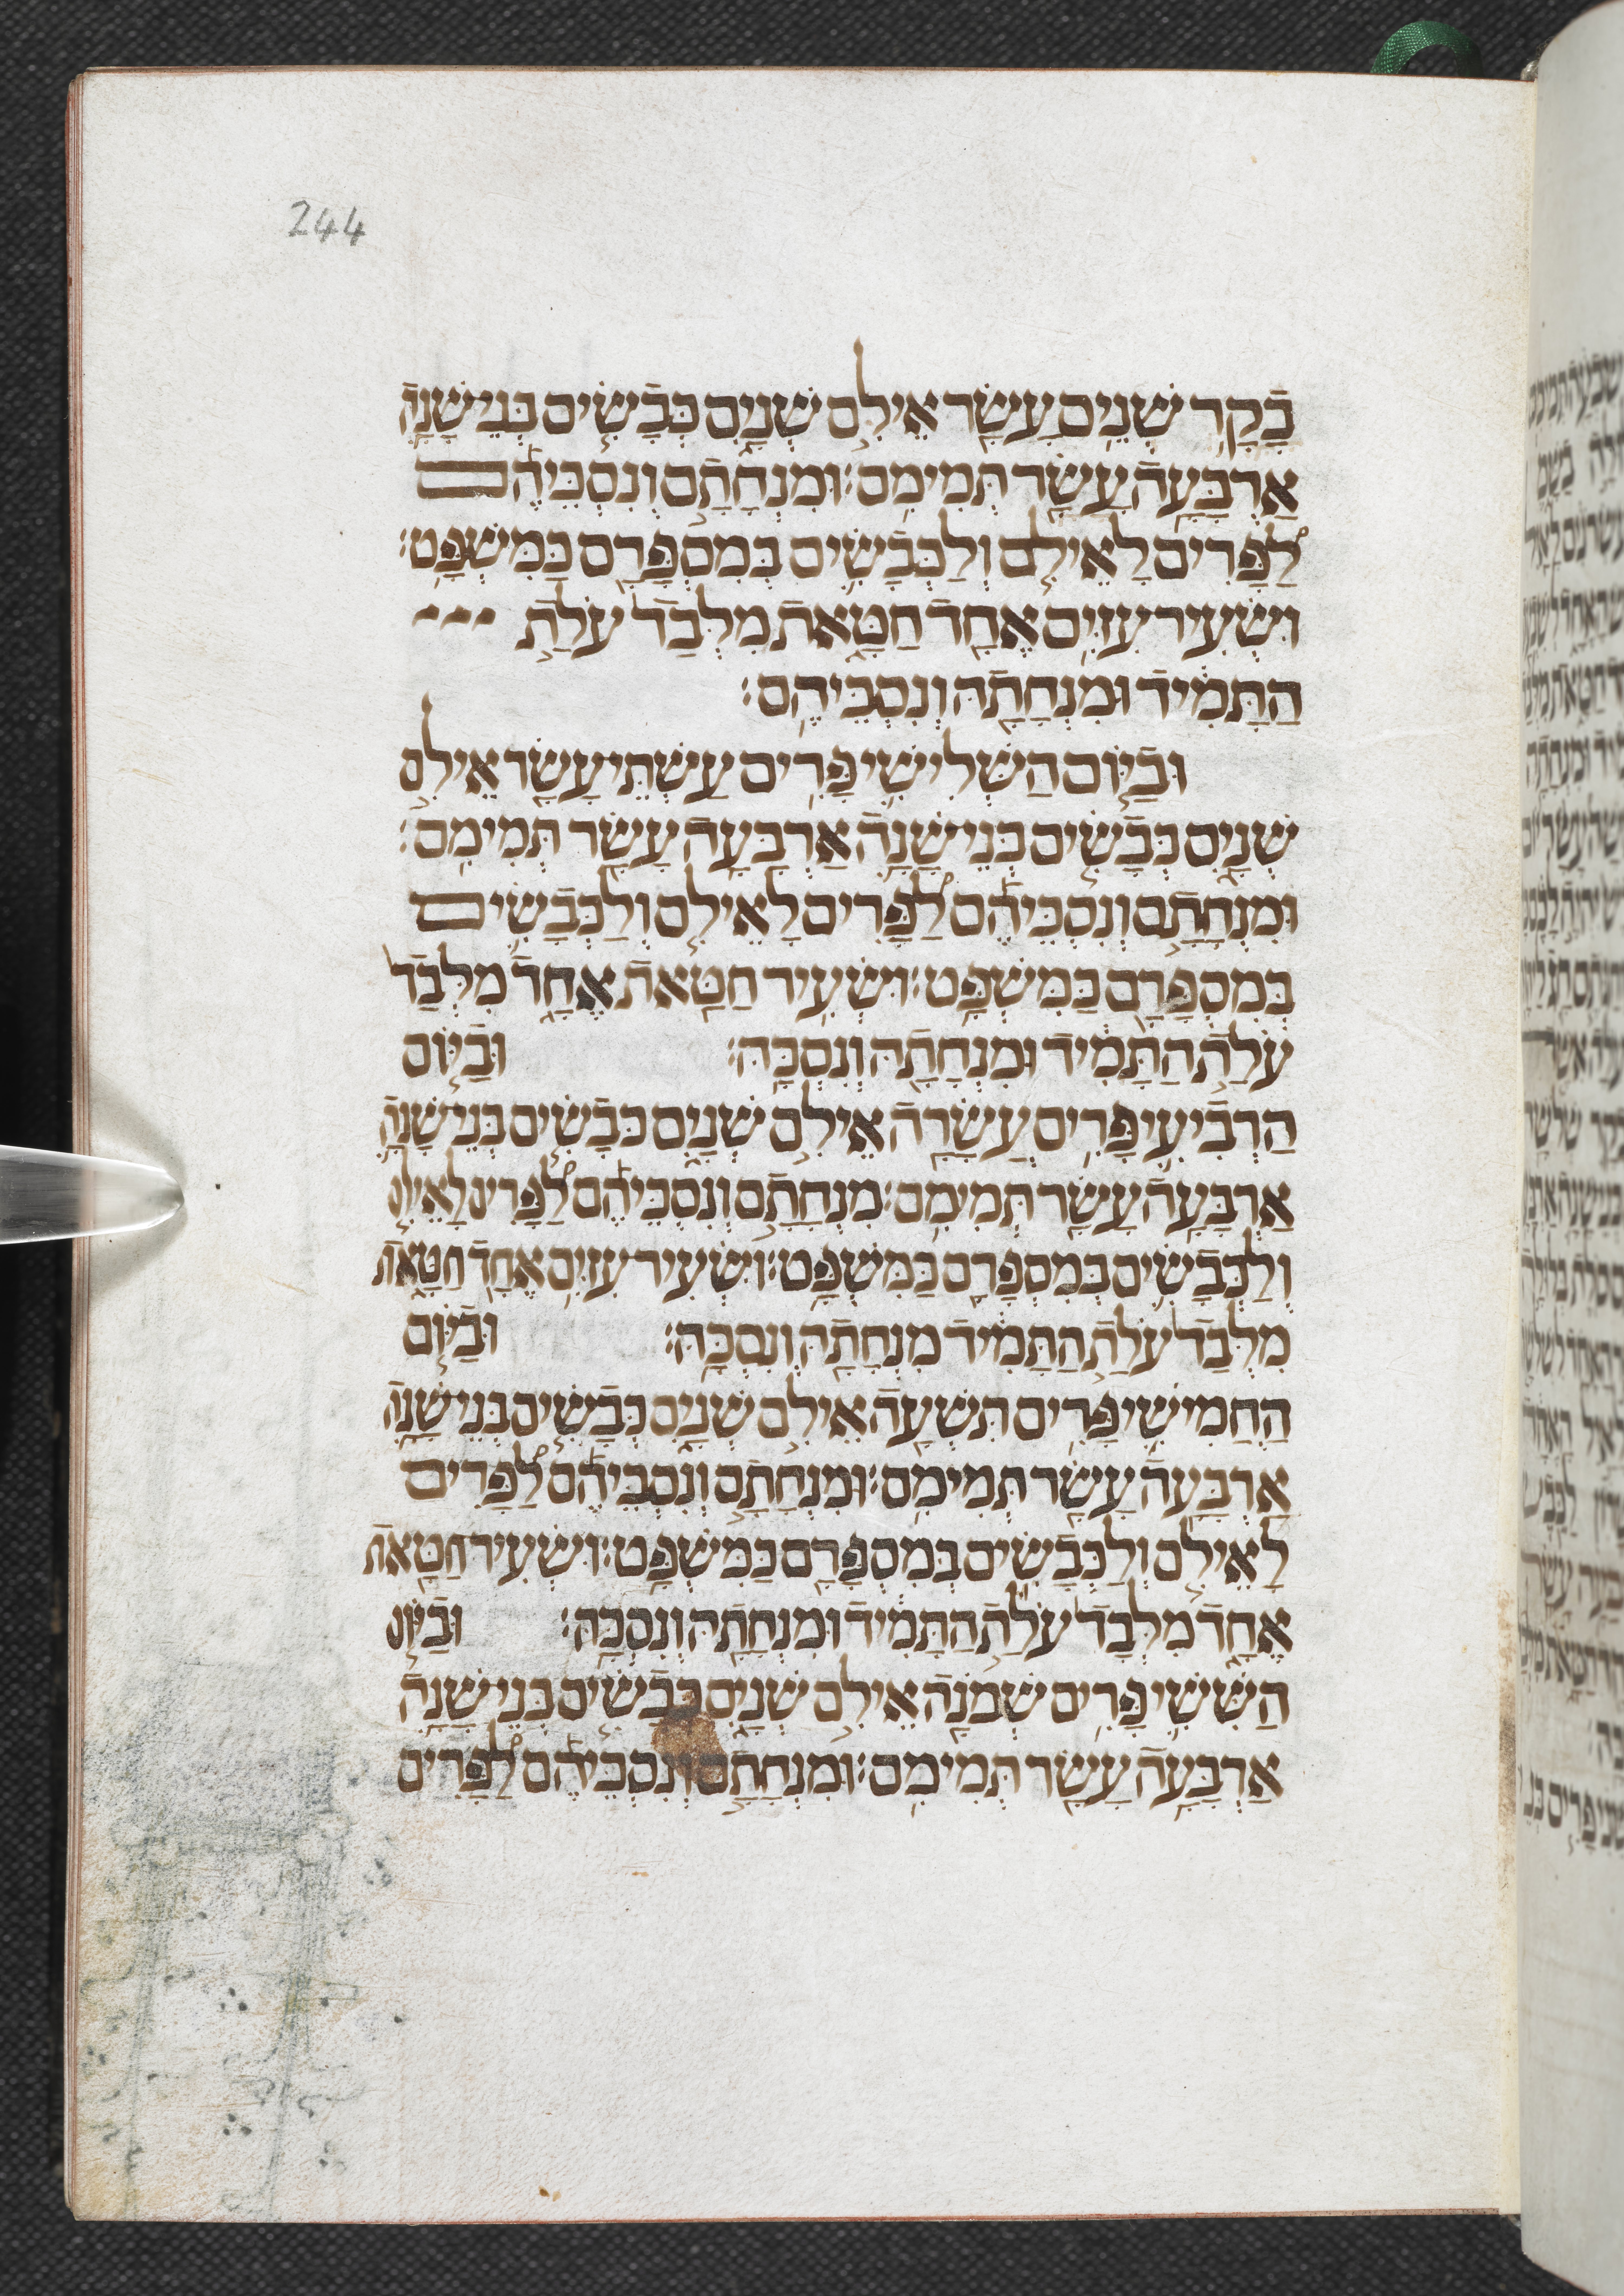 244
בָקָר שְׁנֵים עָשָׂר אֵילִם שְׁנָיִם כְּבָשִׂים בְּנֵי שָׁנָה
אַרְבָּעָה עָשָׂר תְּמִימִם׃ וּמִנְחָתָם וְנִסְכֵּיהֶם
לַפָּרִים לָאֵילִם וְלַכְּבָשִׂים בְּמִסְפָּרָם כַּמִּשְׁפָּט׃
וּשְׂעִיר עִזִּים אֶחָד חַטָּאת מִלְּבַד עֹלַת
הַתָּמִיד וּמִנְחָתָהּ וְנִסְכֵּיהֶם׃
וּבַיּוֹם הַשְּׁלִישִׁי פָּרִים עַשְׁתֵּי עָשָׂר אֵילִם
שְׁנָיִם כְּבָשִׂים בְּנֵי שָׁנָה אַרְבָּעָה עָשָׂר תְּמִימִם׃
וּמִנְחָתָם וְנִסְכֵּיהֶם לַפָּרִים לָאֵילִם וְלַכְּבָשִׂים
בְּמִסְפָּרָם כַּמִּשְׁפָּט׃ וּשְׂעִיר חַטָּאת אֶחָד מִלְּבַד
עֹלַת הַתָּמִיד וּמִנְחָתָהּ וְנִסְכָּהּ׃ וּבַיּוֹם
הָרְבִיעִי פָּרִים עֲשָׂרָה אֵילִם שְׁנָיִם כְּבָשִׂים בְּנֵי שָׁנָה
אַרְבָּעָה עָשָׂר תְּמִימִם׃ מִנְחָתָם וְנִסְכֵּיהֶם לַפָּרִים לָאֵילִם
וְלַכְּבָשִׂים בְּמִסְפָּרָם כַּמִּשְׁפָּט׃ וּשְׂעִיר עִזִּים אֶחָד חַטָּאת
מִלְּבַד עֹלַת הַתָּמִיד מִנְחָתָהּ וְנִסְכָּהּ׃ וּבַיּוֹם
הַחֲמִישִׁי פָּרִים תִּשְׁעָה אֵילִם שְׁנָיִם כְּבָשִׂים בְּנֵי שָׁנָה
אַרְבָּעָה עָשָׂר תְּמִימִם׃ וּמִנְחָתָם וְנִסְכֵּיהֶם לַפָּרִים
לָאֵילִם וְלַכְּבָשִׂים בְּמִסְפָּרָם כַּמִּשְׁפָּט׃ וּשְׂעִיר חַטָּאת
אֶחָד מִלְּבַד עֹלַת הַתָּמִיד וּמִנְחָתָהּ וְנִסְכָּהּ׃ וּבַיּוֹם
הַשִּׁשִּׁי פָּרִים שְׁמֹנָה אֵילִם שְׁנָיִם כְּבָשִׂים בְּנֵי שָׁנָה
אַרְבָּעָה עָשָׂר תְּמִימִם׃ וּמִנְחָתָם וְנִסְכֵּיהֶם לַפָּרִים